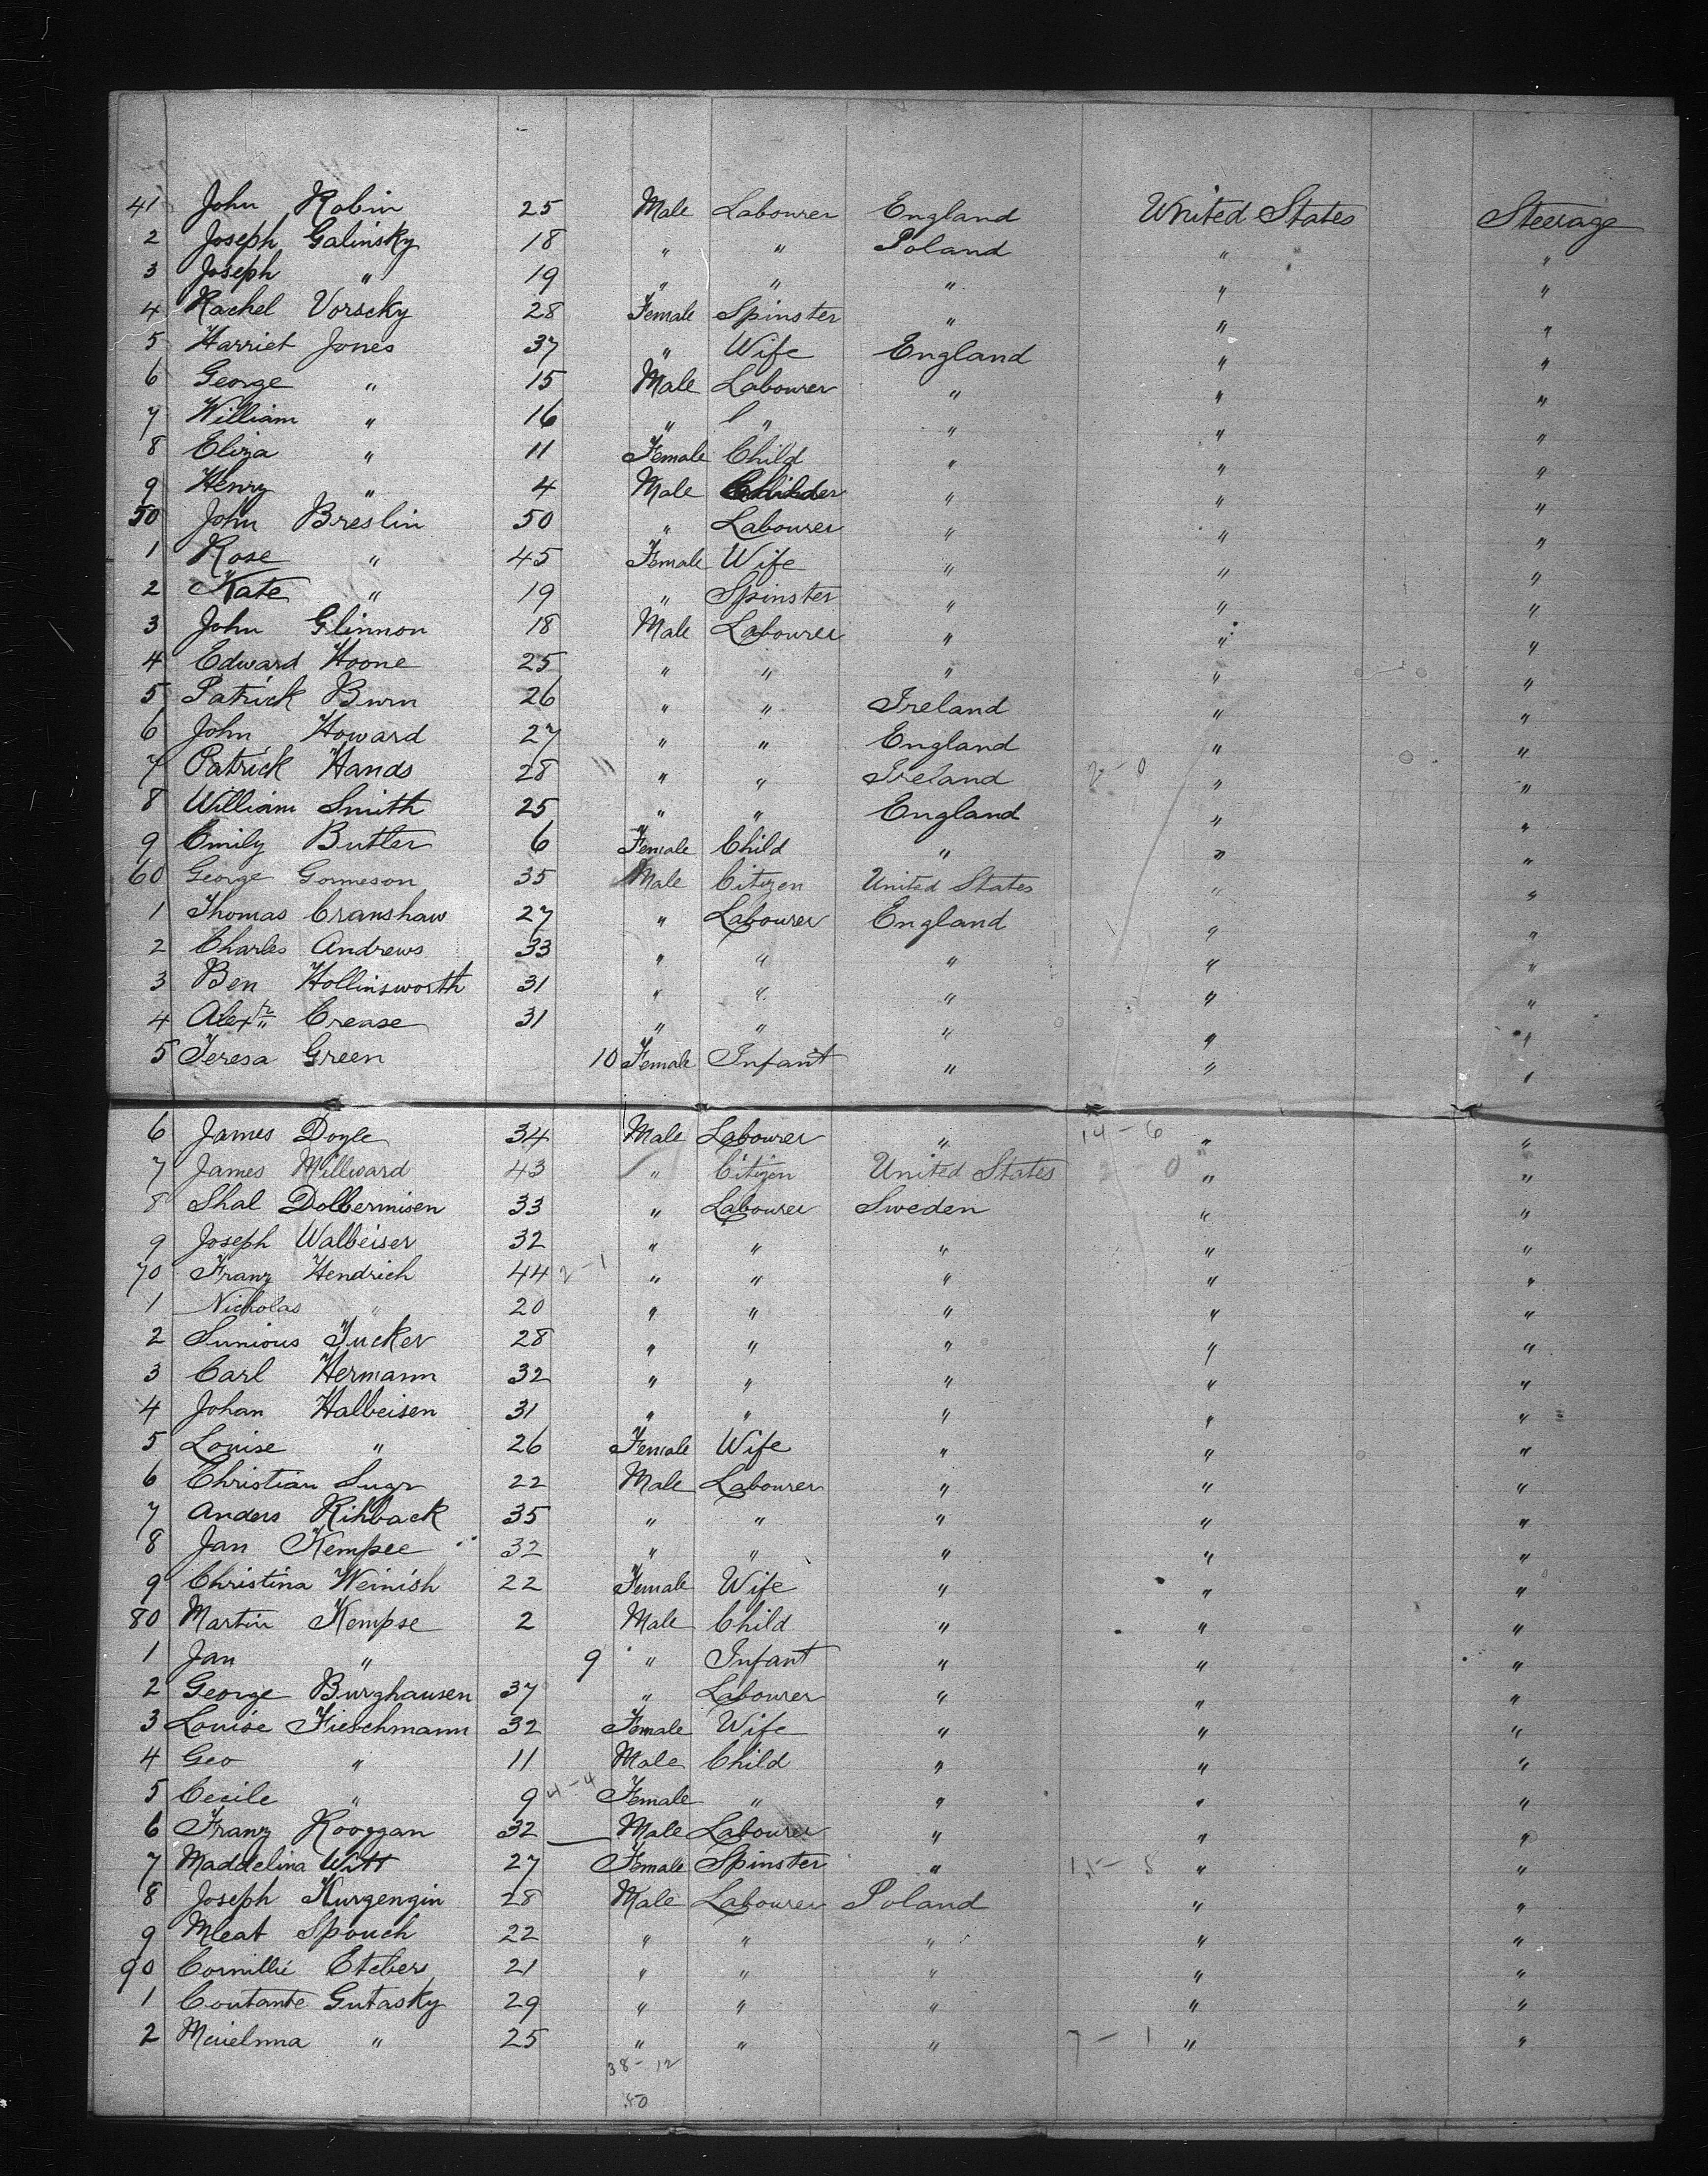 41 John Robin 25 Male Labourer England United States Steerage
2 Joseph Galinsky 18 " " Poland " "
3 Joseph " 19 " " " " "
4 Rachel Vorscky 28 Female Spinster " " "
5 Harriet Jones 37 " Wife England " "
6 George " 15 Male Labourer " " "
7 William " 16 " " " " "
8 Eliza " 11 Female Child " " "
9 Henry " 4 Male Child " " "
50 John Breslin 50 " Labourer " " "
1 Rose " 45 Female Wife " " "
2 Kate " 19 " Spinster " " "
3 John Glinnon 18 Male Labourer " " "
4 Edward Hoone 25 " " " " "
5 Patrick Burn 26 " " Ireland " "
6 John Howard 27 " " England " "
7 Patrick Hands 28 " " Ireland 2-0 " "
8 William Smith 25 " " England " "
9 Emily Butler 6 Female Child " " "
60 George Gomeson 35 Male Citizen United States " "
1 Thomas Cranshaw 27 " Labourer England " "
2 Charles Andrews 33 " " " " "
3 Ben Hollinsworth 31 " " " " "
4 Alexr Crease 31 " " " " "
5 Teresa Green 10 Female Infant " " "
6 James Doyle 34 Male Labourer " 14-6 " "
7 James Millward 43 " Citizen United States 2-0 " "
8 Shal Dolbermisen 33 " Labourer Sweden " "
9 Joseph Walbeiser 32 " " " " "
70 Franz Hendrich 44 2-1 " " " " "
1 Nicholas " 20 " " " " "
2 Sunious Tucker 28 " " " " "
3 Carl Hermann 32 " " " " "
4 Johan Halbeisen 31 " " " " "
5 Louise " 26 Female Wife " " "
6 Christian Sugr 22 Male Labourer " " "
7 Anders Rihback 35 " " " " "
8 Jan Kempee 32 " " " " "
9 Christina Weinish 22 Female Wife " " "
80 Martin Kempse 2 Male Child " " "
1 Jan " 9 " Infant " " "
2 George Burghausen 37 " Labourer " " "
3 Louise Fieschmann 32 Female Wife " " "
4 Geo " 11 Male Child " " "
5 Cecile " 9 4-4 Female " " " "
6 Franz Rooggan 32 Male Labourer " " "
7 Maddelina Witt 27 Female Spinster " 15-5 " "
8 Joseph Kurgengin 28 Male Labourer Poland " "
9 Meat Spouch 22 " " " " "
90 Cornillie Etebers 21 " " " " "
1 Coutante Gutasky 29 " " " " "
2 " 25 " " " 7-1 " "
38-12
50